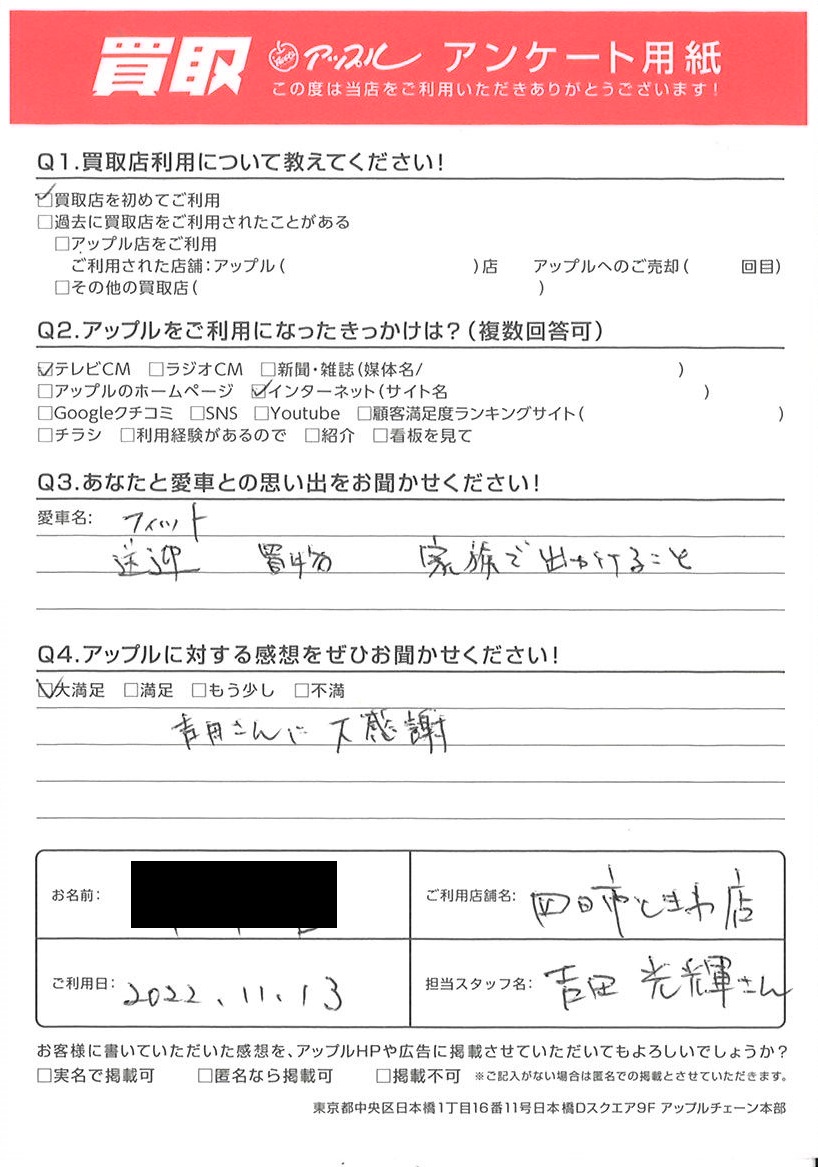 買取 アップル アンケート用紙
この度は当店をご利用いただきありがとうございます!
Q1.買取店利用について教えてください!
☑買取店を初めてご利用
□過去に買取店をご利用されたことがある
□アップル店をご利用
ご利用された店舗:アップル( )店 アップルへのご売却( 回目)
□その他の買取店( )
Q2.アップルをご利用になったきっかけは?(複数回答可)
☑テレビCM □ラジオCM □新聞・雑誌(媒体名/ )
□アップルのホームページ ☑インターネット(サイト名 )
□Googleクチコミ □SNS □Youtube □顧客満足度ランキングサイト( )
□チラシ □利用経験があるので □紹介 □看板を見て
Q3.あなたと愛車との思い出をお聞かせください!
愛車名: フィット
送迎 買い物 家族で出かけること
Q4.アップルに対する感想をぜひお聞かせください!
☑大満足 □満足 □もう少し □不満
吉田さんに大感謝
お名前:
ご利用店舗名: 四日市ときわ店
ご利用日: 2022.11.13
担当スタッフ名: 吉田 光輝さん
お客様に書いていただいた感想を、アップルHPや広告に掲載させていただいてもよろしいでしょうか?
□実名で掲載可 □匿名なら掲載可 □掲載不可 ※ご記入がない場合は匿名での掲載とさせていただきます。
東京都中央区日本橋1丁目16番11号日本橋Dスクエア9F アップルチェーン本部